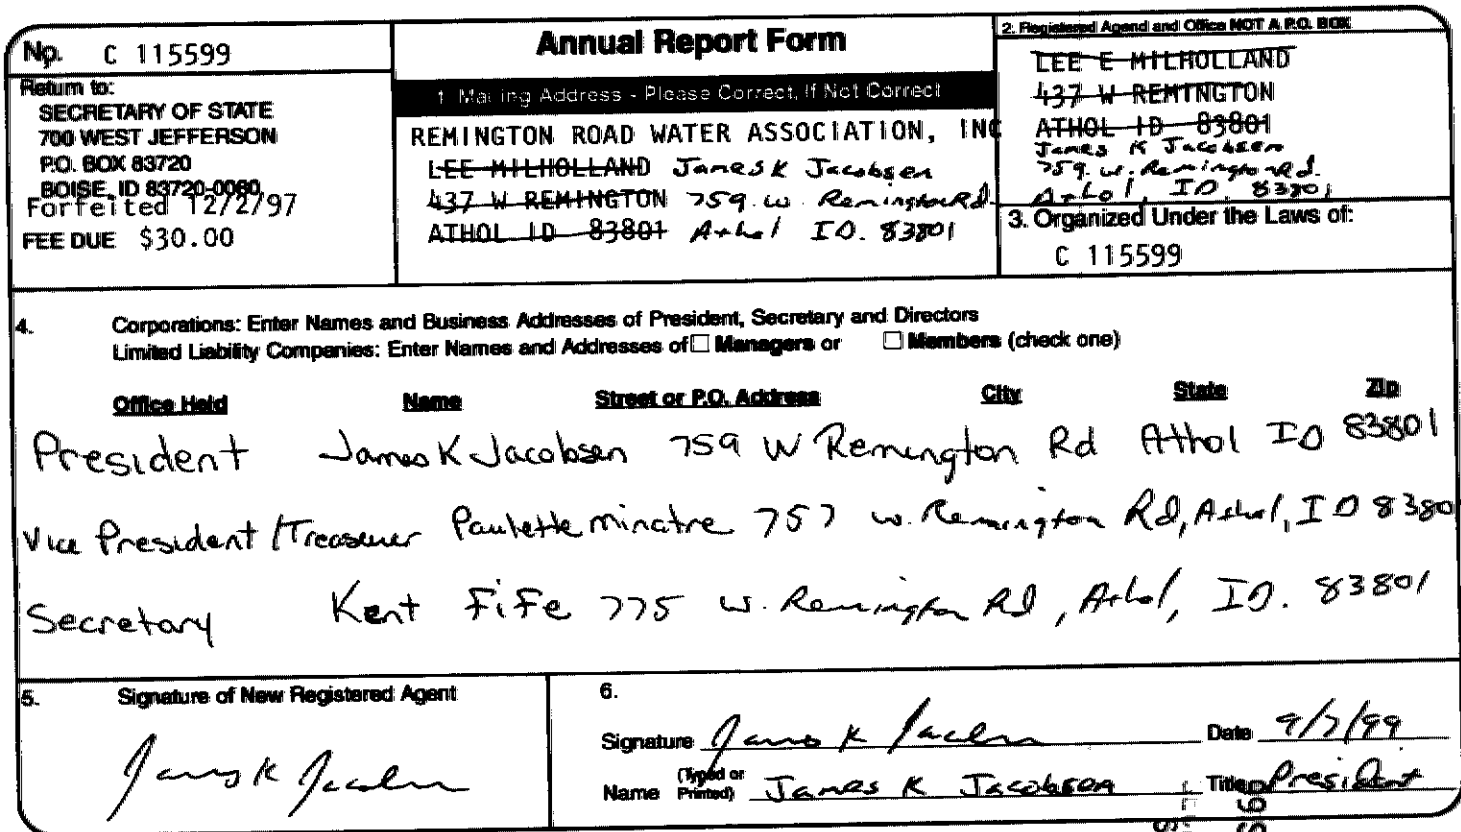 No. C 115599
Return to:
SECRETARY OF STATE
700 WEST JEFFERSON
P.O. BOX 83720
BOISE, ID 83720-0080
Forfeited 12/2/97
FEE DUE $30.00
Annual Report Form
1. Mailing Address - Please Correct, If Not Correct
REMINGTON ROAD WATER ASSOCIATION, INC
LEE MILHOLLAND James K Jacobsen
437 W REMINGTON 759. W. Remington Rd.
ATHOL ID 83801 Athol ID. 83801
2. Registered Agend and Office NOT A P.O. BOX
LEE E MILHOLLAND
437 W REMINGTON
ATHOL ID 83801
James K Jacobsen
759. W. Remington Rd.
Athol, ID. 83801
3. Organized Under the Laws of:
C 115599
4. Corporations: Enter Names and Business Addresses of President, Secretary and Directors
Limited Liability Companies: Enter Names and Addresses of Managers or Members (check one)
Office Held Name Street or P.O. Address City State Zip
President James K Jacobsen 759 W Remington Rd Athol ID 83801
Vice President/Treasurer Paulette Minatre 757 W. Remington Rd, Athol, ID 8380
Secretary Kent Fife 775 W. Remington Rd, Athol, ID. 83801
5. Signature of New Registered Agent
James K Jacobsen
6.
Signature James K Jacobsen Date 9/7/99
Name (Typed or Printed) James K Jacobsen Title President